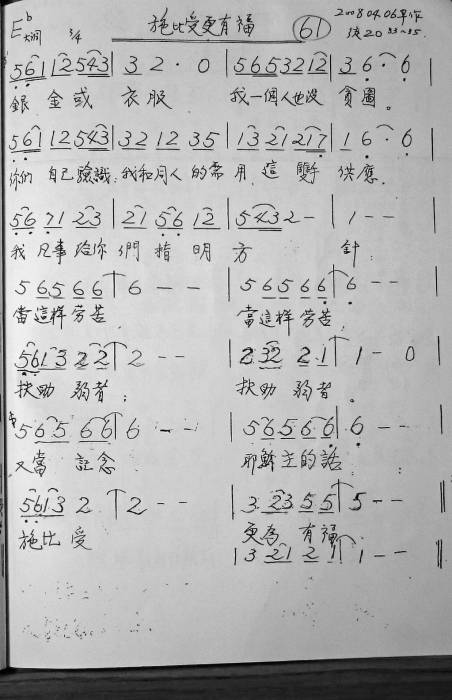 E♭大調 3/4 施比受更有福 61 2008.04.06早作
徒20 33~35.
5 6 1 1 2 5 4 3 | 3 2 · 0 | 5 6 5 3 2 1 2 | 3 6 · 6 |
銀 金或 衣服 我一個人也沒 貪圖。
5 6 1 1 2 5 4 3 | 3 2 1 2 3 5 | 1 3 2 1 2 1 7 | 1 6 · 0 |
你們 自己 知識; 我和同人 的需 用 這 雙手 供應.
5 6 7 1 2 3 | 2 1 5 6 1 2 | 5 4 3 2 - | 1 - - |
我 凡事給你 們 指 明 方 針:
5 6 5 6 6 | 6 - - | 5 6 5 6 6 | 6 - -
當這樣勞苦 當這樣 勞苦,
5 6 1 3 2 2 | 2 - - | 2 3 2 2 1 | 1 - 0
扶助 弱者; 扶助 弱者。
5 6 5 6 6 | 6 - - | 5 6 5 6 6 | 6 - -
又當 記念 耶穌主的話:
5 6 1 3 2 | 2 - - | 3 2 3 5 5 | 5 - - ‖
施比受 更為 有福
| 3 2 1 2 1 | 1 - - ‖